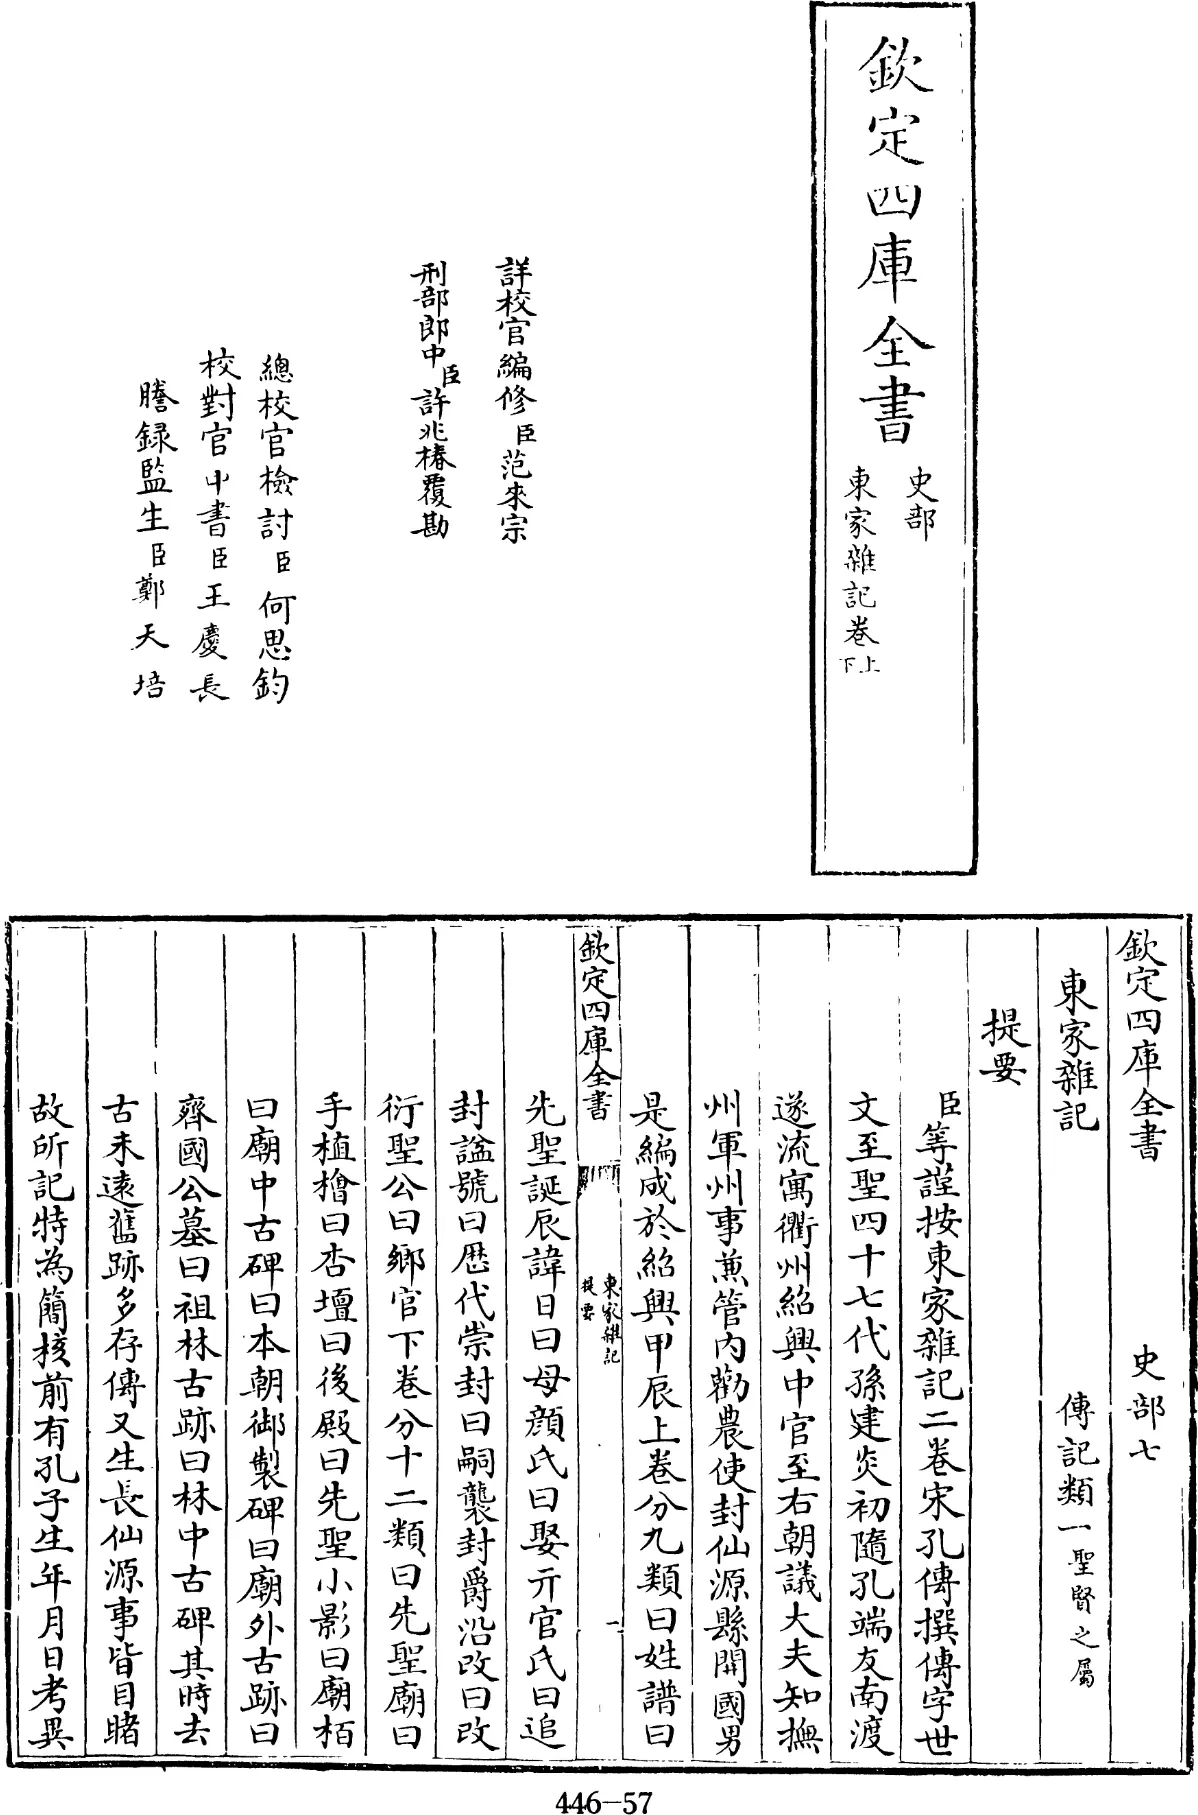 欽定四庫全書
史部
東家雜記卷上下
詳校官編修臣范來宗
刑部郎中臣許兆椿覆勘
總校官檢討臣何思鈞
校對官中書臣王慶長
謄録監生臣鄭天培
欽定四庫全書 史部七
東家雜記 傳記類一聖賢之屬
提要
臣等謹按東家雜記二卷宋孔傳撰傳字世
文至聖四十七代孫建炎初隨孔端友南渡
遂流寓衢州紹興中官至右朝議大夫知撫
州軍州事兼管内勸農使封仙源縣開國男
是編成於紹興甲辰上卷分九類曰姓譜曰
欽定四庫全書 東家雜記 提要 一
先聖誕辰諱日曰母顔氏曰娶亓官氏曰追
封諡號曰歴代崇封曰嗣襲封爵沿改曰改
衍聖公曰鄉官下卷分十二類曰先聖廟曰
手植檜曰杏壇曰後殿曰先聖小影曰廟栢
曰廟中古碑曰本朝御製碑曰廟外古跡曰
齊國公墓曰祖林古跡曰林中古碑其時去
古未遠舊跡多存傳又生長仙源事皆目睹
故所記特為簡核前有孔子生年月日考異
446-57